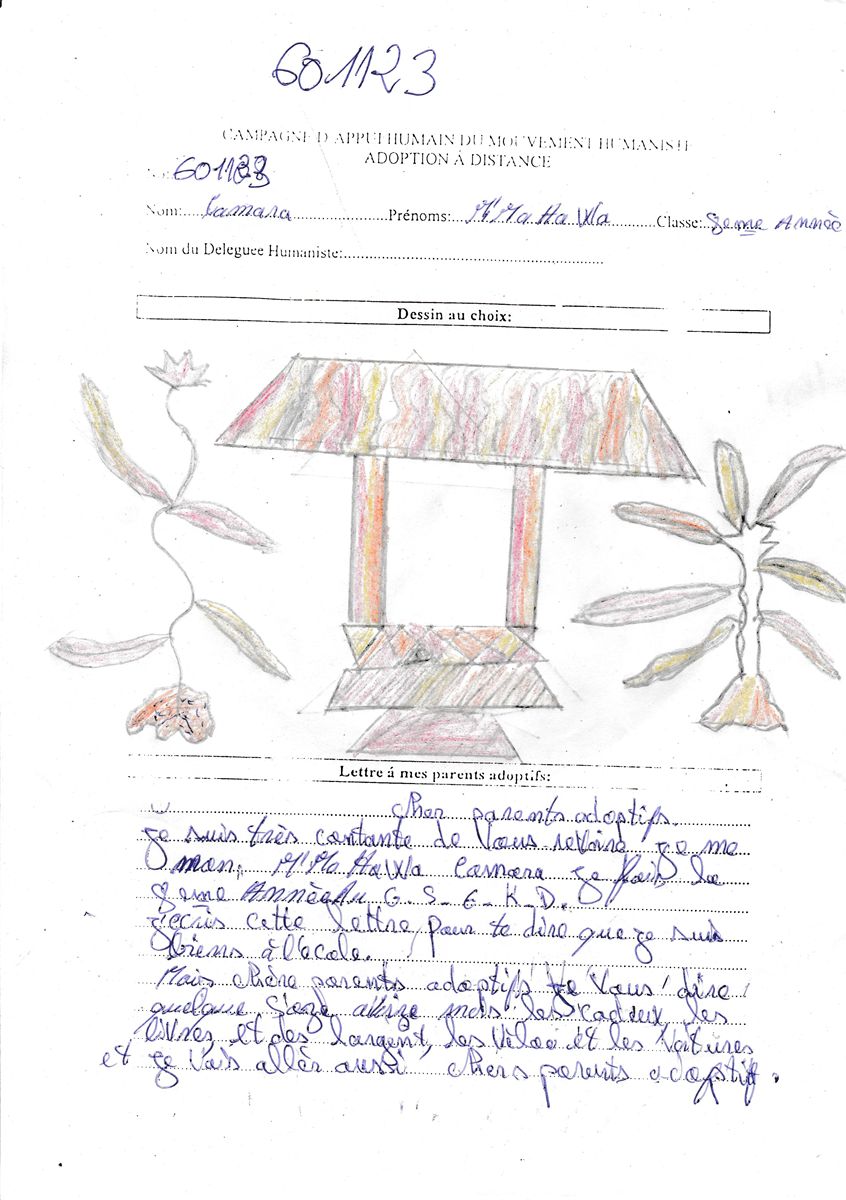 601123
CAMPAGNE D'APPUI HUMAIN DU MOUVEMENT HUMANISTE
ADOPTION À DISTANCE
Nom: Camara Prénoms: M'Ma HaWa Classe: 8eme Année
Nom du Deleguee Humaniste:
Dessin au choix:
Lettre á mes parents adoptifs:
cher parents adoptifs.
je suis très contante de vous revoire je me
mon, M'Ma HaWa Camara je fais la
8eme Année Au G-S-E-K-D.
j'ecris cette lettre, pour te dire que je suis
biens à l'ecole.
Mais chère parents adoptifs je vous dire
quelque mois les cadeux les
livres, et des largent, les Véloo et les Voitures
et je vais allèr aussi chers parents adoptif.